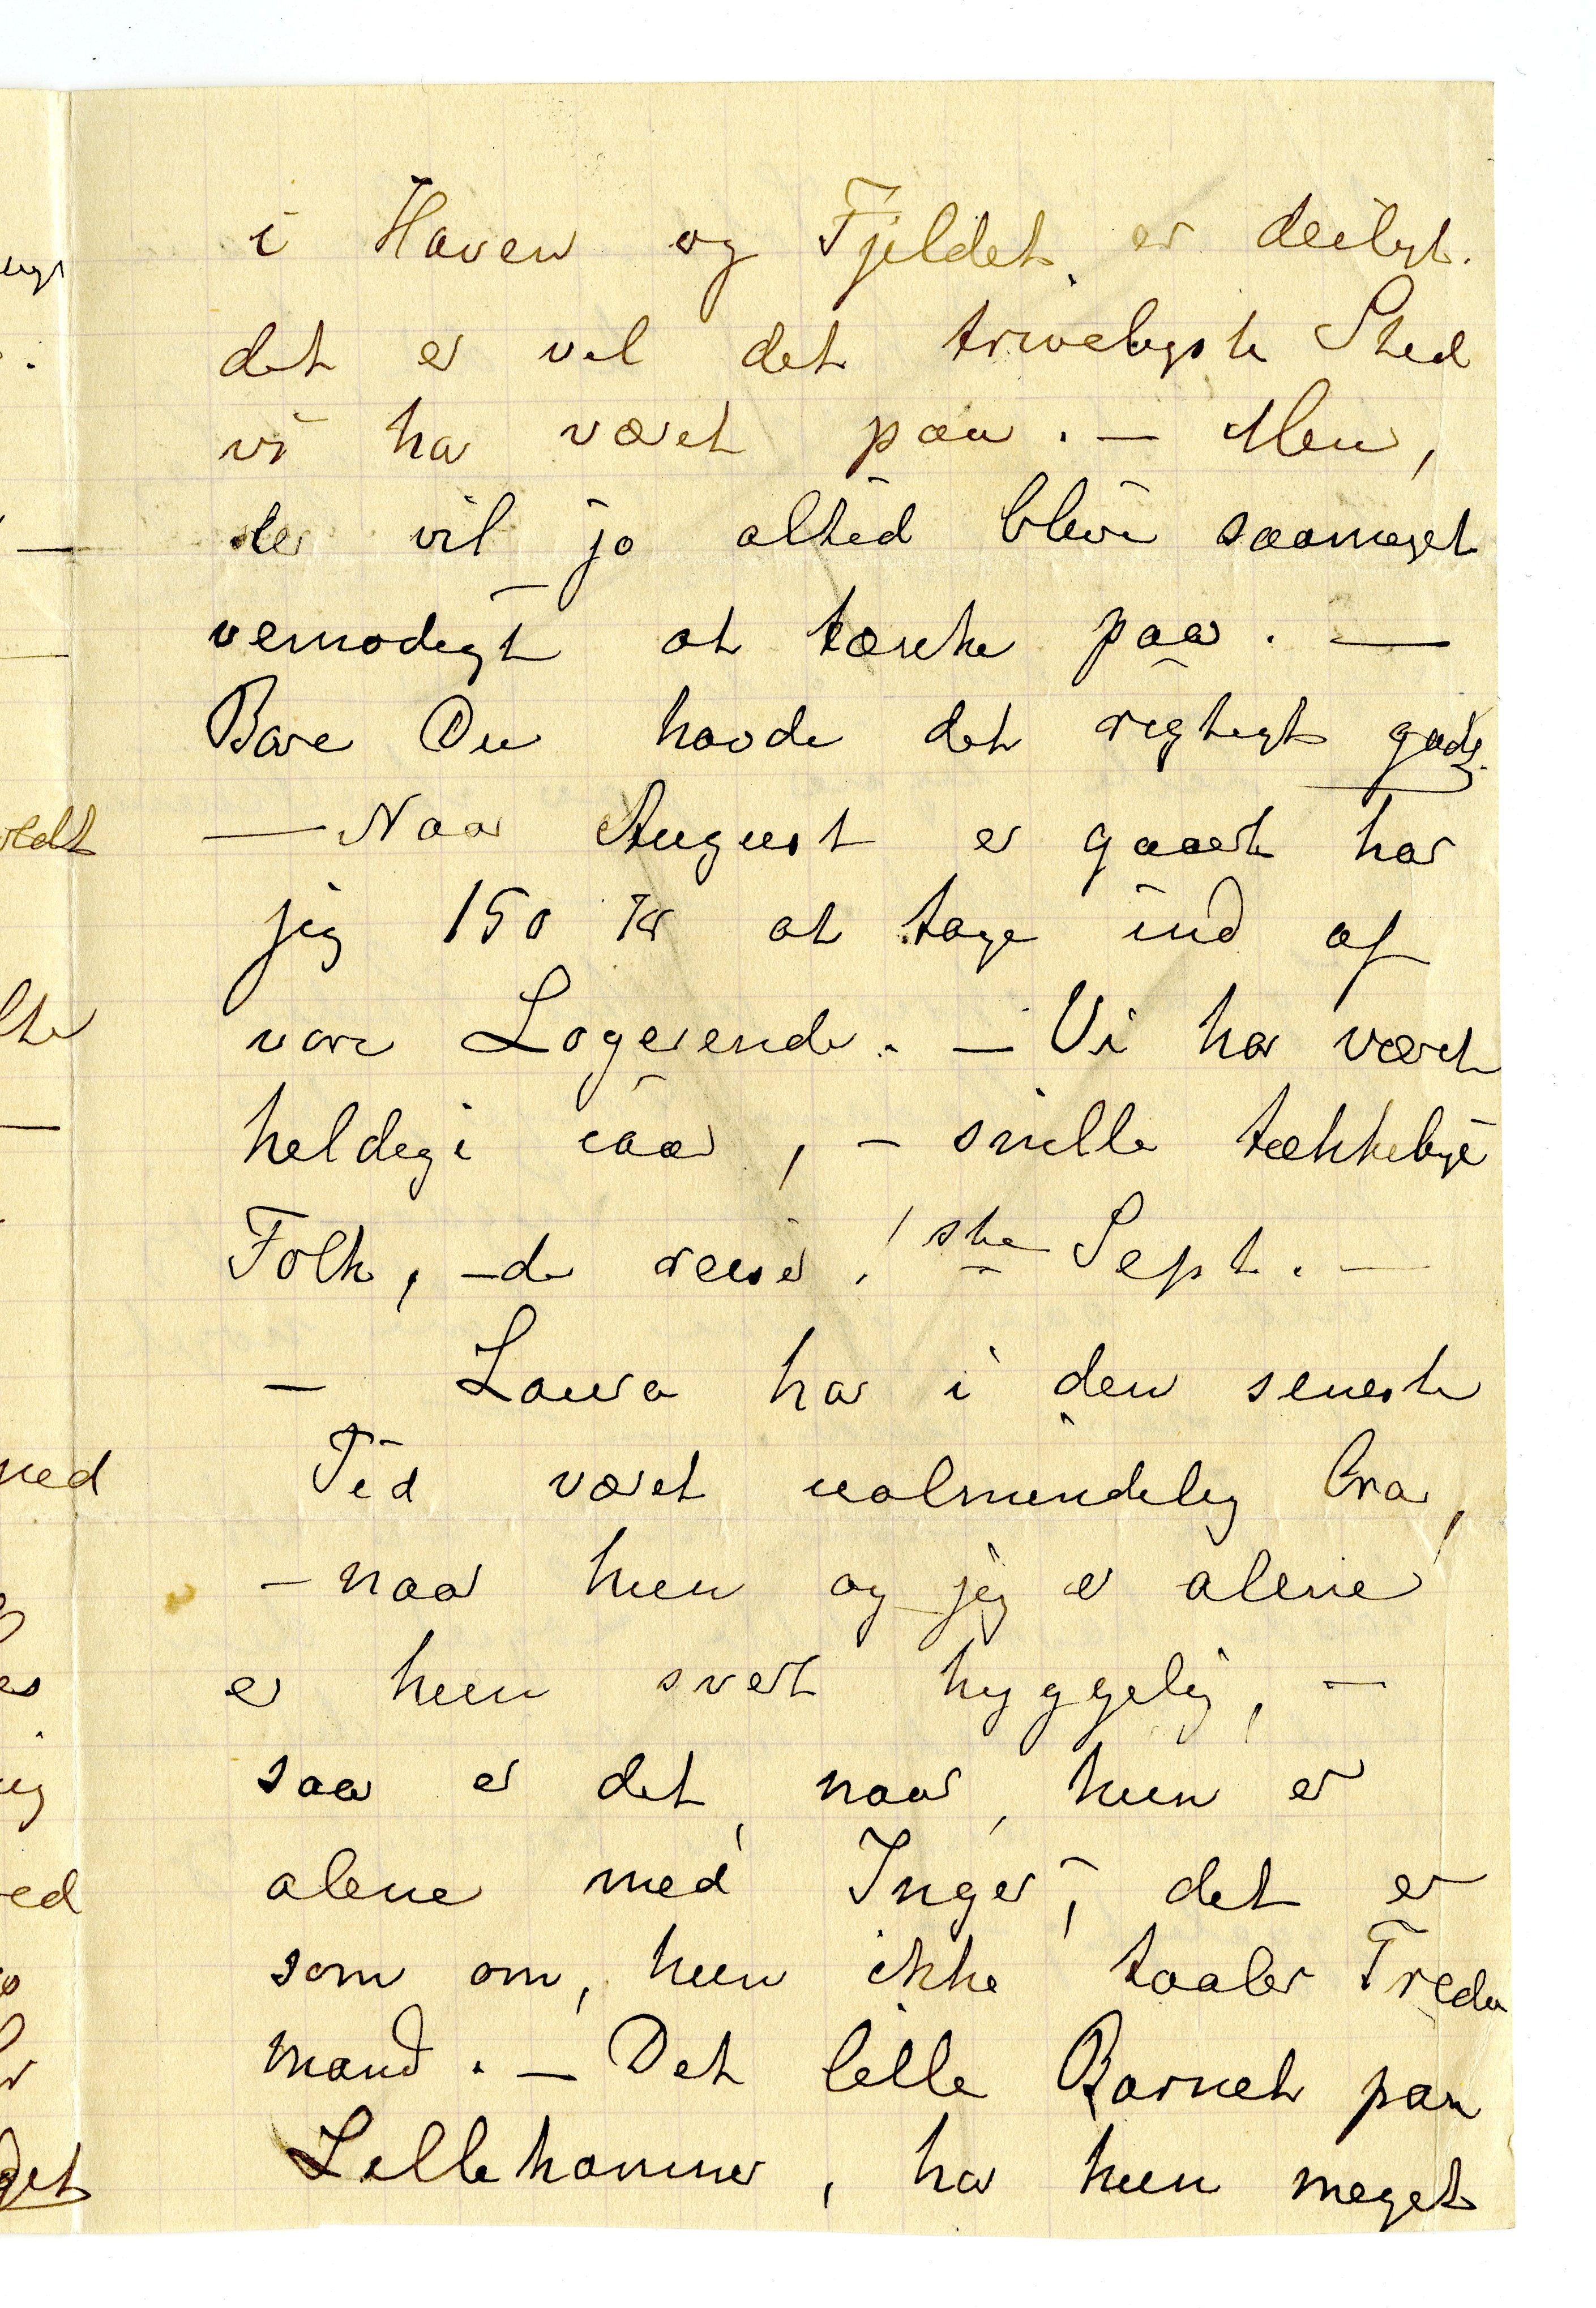 i Haven og Fjeldet er deiligt.
det er vel det triveligste Sted
vi ha været paa. — Men,
der vil jo altid blive saameget
vemodigt at tænke paa. —
Bare Du havde det rigtigt godt.
— Naar August er gaaet har
jeg 150 Kr at tage ind af
vore Logerende. — Vi har været
heldige iaar, — snille tækkelige
Folk, — de reiser 1ste Sept. —
— Laura har i den seneste
Tid været ualmindelig bra,
— naar hun og jeg er alene
er hun svært hyggelig, —
saa er det, naar, hun er
alene med Inger, det er
som om, hun ikke taaler Tredie
mand. — Det lille Barnet paa
Lillehammer, har hun meget